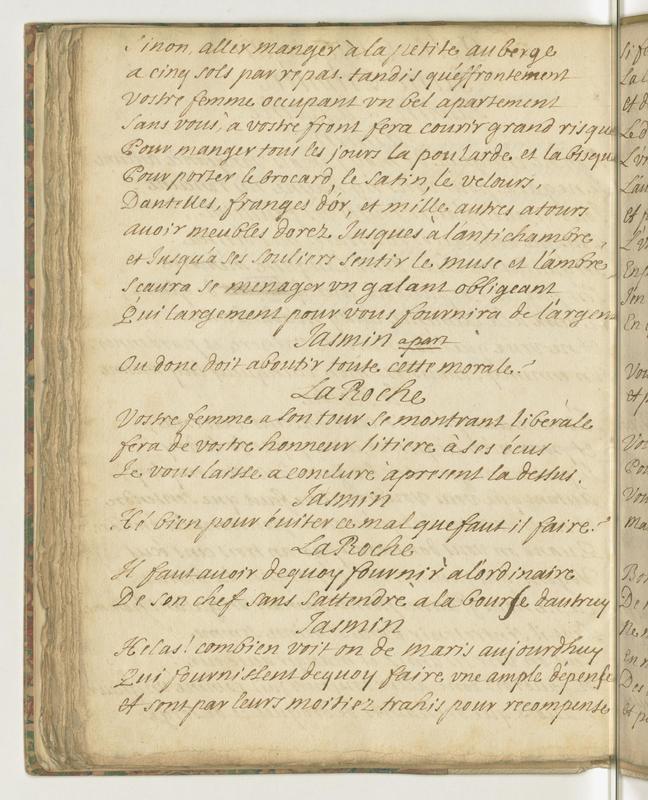 Sinon, aller manger à la petite auberge
a cinq sols par repas. tandis qu'effrontement
Vostre femme occupant vn bel apartement
Sans vous, a vostre front fera courir grand risque
Pour manger tous les jours la poularde et la bisque
Pour porter le brocard, le satin, le velours,
Dantelles, franges d'or, et mille autres atours
auoir meubles dorez Jusques a l'antichambre,
et Jusqu'a ses souliers sentir le musc et l'ambre,
Scaura se menager vn galant obligeant
Qui largement pour vous fournira de l'argent
Jasmin apart
Ou donc doit aboutir toute cette morale?
La Roche
Vostre femme a son tour se montrant liberale
fera de vostre honneur litiere à ses écus
Je vous laisse a conclure apresent la dessus.
Jasmin
Hé bien pour éuiter ce mal que faut il faire?
La Roche
Il faut auoir dequoy fournir a l'ordinaire
De son chef sans s'attendre a la bourse dautruy
Jasmin
Helas! combien voit on de maris aujourdhuy
Qui fournissent dequoy faire vne ample dépense
et sont par leurs moitiez trahis pour recompense